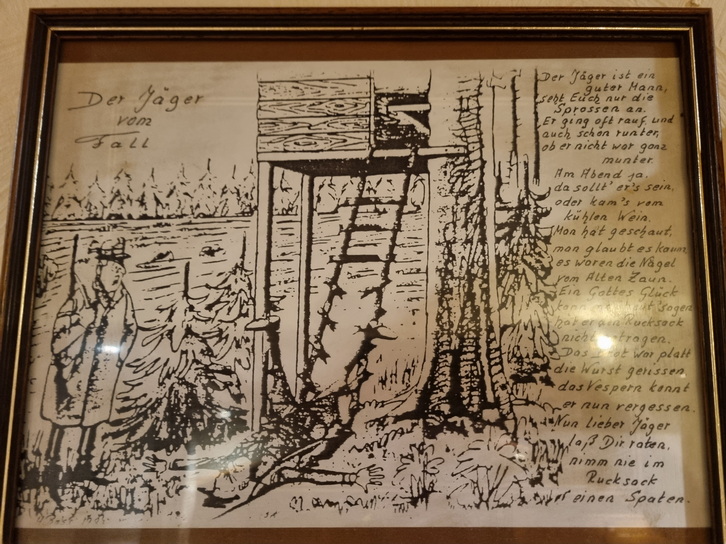 Der Jäger
vom
Fall
Der Jäger ist ein
guter Mann,
seht Euch nur die
Sprossen an.
Er ging oft rauf, und
auch schon runter,
ob er nicht war ganz
munter.
Am Abend ja.
da sollt' er's sein,
oder kam's vom
kühlen Wein.
Man hat geschaut,
man glaubt es kaum
es waren die Nägel
vom Alten Zaun.
Ein Gottes Glück
hat er den Rucksack
nicht getragen.
Das war platt
die Wurst gerissen
das Vespern konnt
er nun vergessen.
Nun lieber Jäger
laß Dir raten,
nimm nie im
Rucksack
einen Spaten.